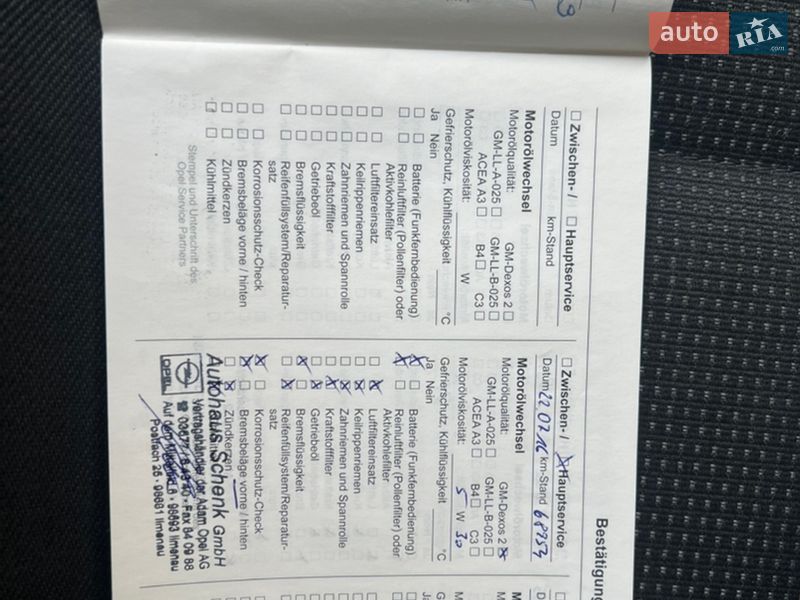 auto RIA.com
Bestätigung
☐ Zwischen- / ☐ Hauptservice
Datum km-Stand
Motorölwechsel
Motorölqualität: GM-Dexos 2 ☐
GM-LL-A-025 ☐ GM-LL-B-025 ☐
ACEA A3 ☐ B4 ☐ C3 ☐
Motorölviskosität: W
Gefrierschutz, Kühlflüssigkeit °C
Ja Nein
☐ ☐ Batterie (Funkfernbedienung)
☐ ☐ Reinluftfilter (Pollenfilter) oder
Aktivkohlefilter
☐ ☐ Luftfiltereinsatz
☐ ☐ Keilrippenriemen
☐ ☐ Zahnriemen und Spannrolle
☐ ☐ Kraftstofffilter
☐ ☐ Getriebeöl
☐ ☐ Bremsflüssigkeit
☐ ☐ Reifenfüllsystem/Reparatur-
satz
☐ ☐ Korrosionsschutz-Check
☐ ☐ Bremsbeläge vorne / hinten
☐ ☐ Zündkerzen
☐ ☐ Kühlmittel
Stempel und Unterschrift des
Opel Service Partners
☐ Zwischen- / ☒ Hauptservice
Datum 22 07 16 km-Stand 68954
Motorölwechsel
Motorölqualität: GM-Dexos 2 ☒
GM-LL-A-025 ☐ GM-LL-B-025 ☐
ACEA A3 ☐ B4 ☐ C3 ☐
Motorölviskosität: 5 W 30
Gefrierschutz, Kühlflüssigkeit °C
Ja Nein
☒ ☐ Batterie (Funkfernbedienung)
☒ ☐ Reinluftfilter (Pollenfilter) oder
Aktivkohlefilter
☐ ☒ Luftfiltereinsatz
☐ ☒ Keilrippenriemen
☐ ☒ Zahnriemen und Spannrolle
☐ ☒ Kraftstofffilter
☐ ☒ Getriebeöl
☒ ☐ Bremsflüssigkeit
☐ ☒ Reifenfüllsystem/Reparatur-
satz
☒ ☐ Korrosionsschutz-Check
☒ ☐ Bremsbeläge vorne / hinten
☐ ☒ Zündkerzen
Autohaus Schenk GmbH
Vertragshändler der Adam Opel AG
OPEL
Fax 84 09 88
98693 Ilmenau
Postfach 25 · 98681 Ilmenau